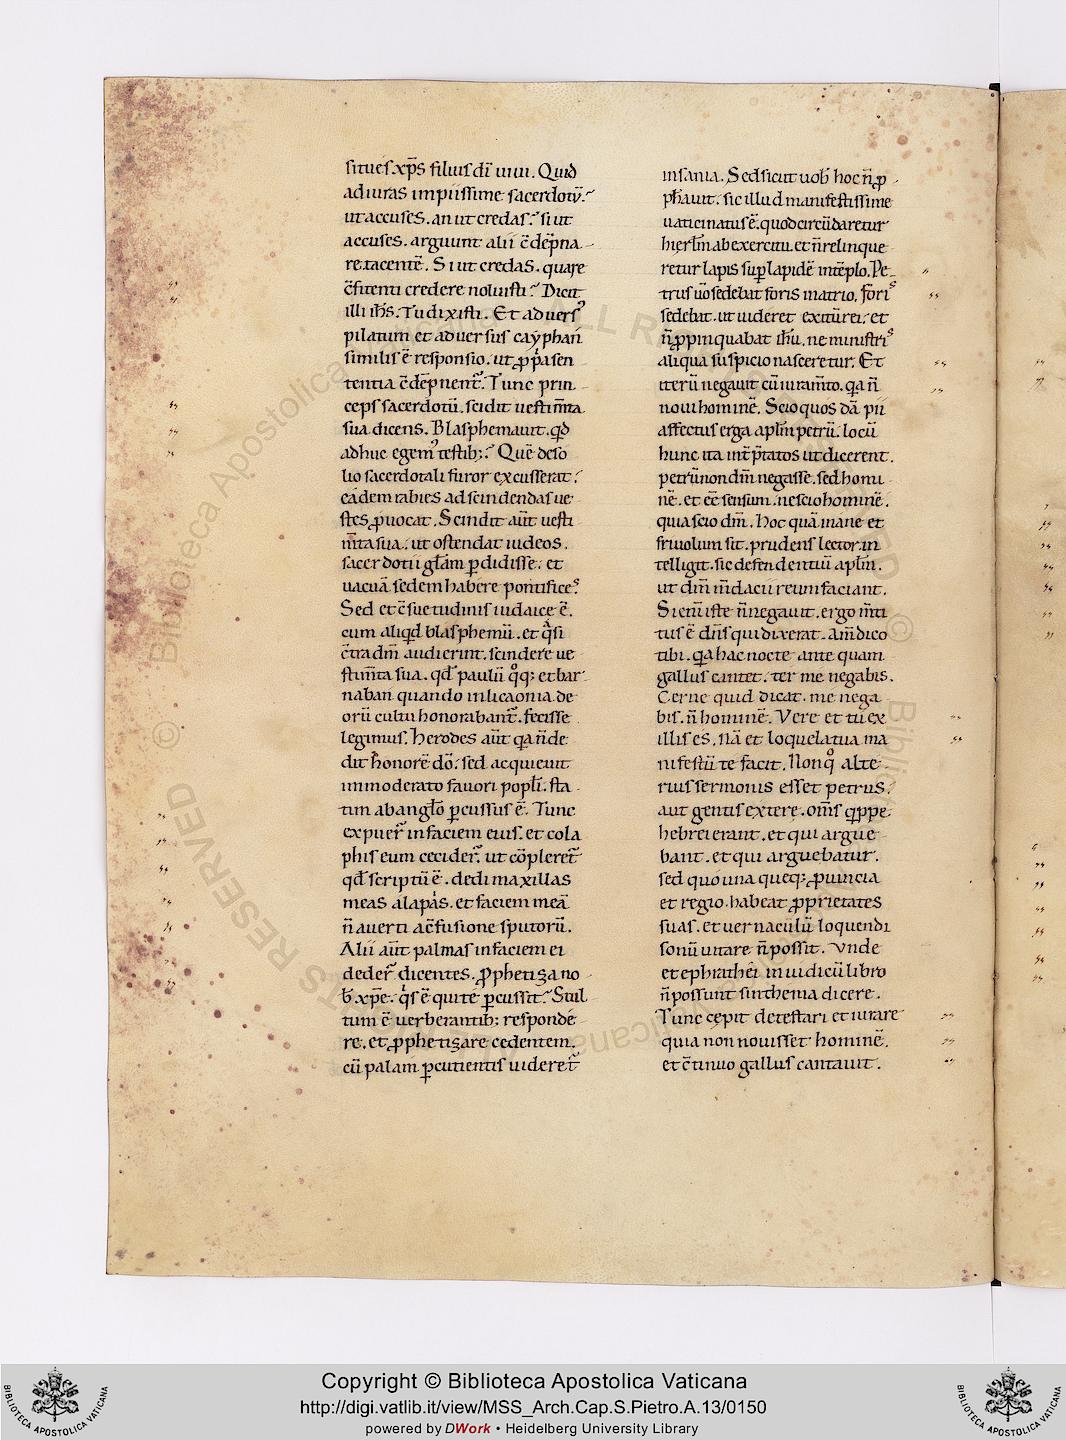 si tu es xp̅s filius di̅ uiui. Quid
adiuras impiissime sacerdotu̅.
ut accuses. an ut credas? si ut
accuses. arguunt alii. c̅de̅pna
re tacente̅. Si ut credas. quare
c̅fitenti credere noluisti? Dicit
illi ih̅s. Tu dixisti. Et aduersꝰ
pilatum et aduersus cayphan
similis e̅ responsio. ut ꝓpͥa sen
tentia c̅de̅pnent᷑. Tunc prin
ceps sacerdotu̅. scidit uestim̅ta
sua dicens. Blasphemauit. qd̅
adhuc egemꝰ testib;? Que̅ de so
lio sacerdotali furor excusserat.
eadem rabies ad scindendas ue
stes ꝓuocat. Scindit aut̅ uesti
m̅ta sua. ut ostendat iudeos.
sacerdotii gl̅am ꝑdidisse. et
uacua̅ sedem habere pontificeˢ.
Sed et c̅suetudinis iudaice e̅.
cum aliqd̅ blasphemu̅. et qͣsi
c̅tra dm̅ audierint. scindere ue
stim̅ta sua. qd̅ paulu̅ qͦq; et bar
naban quando in licaonia de
oru̅ cultu honorabant᷑. fecisse
legimus. Herodes aut̅ qa n̅ de
dit honore̅ do̅. sed acquieuit
immoderato fauori popl̅i. sta
tim ab anglo̅ ꝑcussus e̅. Tunc
expuer̅ in faciem eius. et cola
phis eum cecider̅. ut co̅pleret᷑
qd̅ scriptu̅ e̅. dedi maxillas
meas alapis. et faciem mea̅
n̅ auerti a c̅fusione sputoru̅.
Alii aut̅ palmas in faciem ei
deder̅ dicentes. Ꝓphetiza no
b̅ xp̅e. qͥs e̅ qui te ꝑcussit? Stul
tum e̅ uerberantib; responde
re. et ꝓphetizare cedentem.
cu̅ palam ꝑcutientis uideret᷑
insania. Sed sicut uob̅ hoc n̅ ꝓ
ph̅auit. sic illud manifestissime
uaticinatus e̅. quod circu̅daretur
hierl̅m ab exercitu. et n̅ relinque
retur lapis suꝑ lapide̅ in te̅plo. Pe
trus uo̅ sedebat foris in atrio. foriˢ
sedebat. ut uideret exitu̅ rei. et
n̅ ꝓpinquabat ih̅u. ne ministriˢ
aliqua suspicio nasceretur. Et
iteru̅ negauit cu̅ iuram̅to. qa n̅
noui homine̅. Scio quosda̅ pii
affectus erga apl̅m petru̅. locu̅
hunc ita int̅p̅tatos ut dicerent.
petru̅ non dm̅ negasse. sed homi
ne̅. et ee̅ sensum. nescio homine̅.
quia scio dm̅. Hoc qua̅ inane et
friuolum sit. prudens lector in
telligit. sic defendentiu̅ apl̅m.
ut dm̅ m̅dacii reum faciant.
Si eni̅ iste n̅ negauit. ergo m̅ti
tus e̅ dn̅s qui dixerat. Am̅ dico
tibi. qa hac nocte ante quam
gallus cantet. ter me negabis.
Cerne quid dicat. me nega
bis. n̅ homine̅. Vere et tu ex
illis es. na̅ et loquela tua ma
nifestu̅ te facit. Non qͦ alte
rius sermonis esset petrus.
aut gentis extere. om̅s qippe
hebrei erant. et qui argue
bant. et qui arguebatur.
sed quo unaqueq; ꝓuincia
et regio. habeat ꝓprietates
suas. et uernaculu̅ loquendi
sonu̅ uitare n̅ possit. Vnde
et ephrathei in iudicu̅ libro
n̅ possunt sinthema dicere.
Tunc cepit detestari et iurare
quia non nouisset homine̅.
et c̅tinuo gallus cantauit.
Copyright © Biblioteca Apostolica Vaticana
http://digi.vatlib.it/view/MSS_Arch.Cap.S.Pietro.A.13/0150
powered by DWork • Heidelberg University Library
BIBLIOTECA APOSTOLICA VATICANA
BIBLIOTECA APOSTOLICA VATICANA